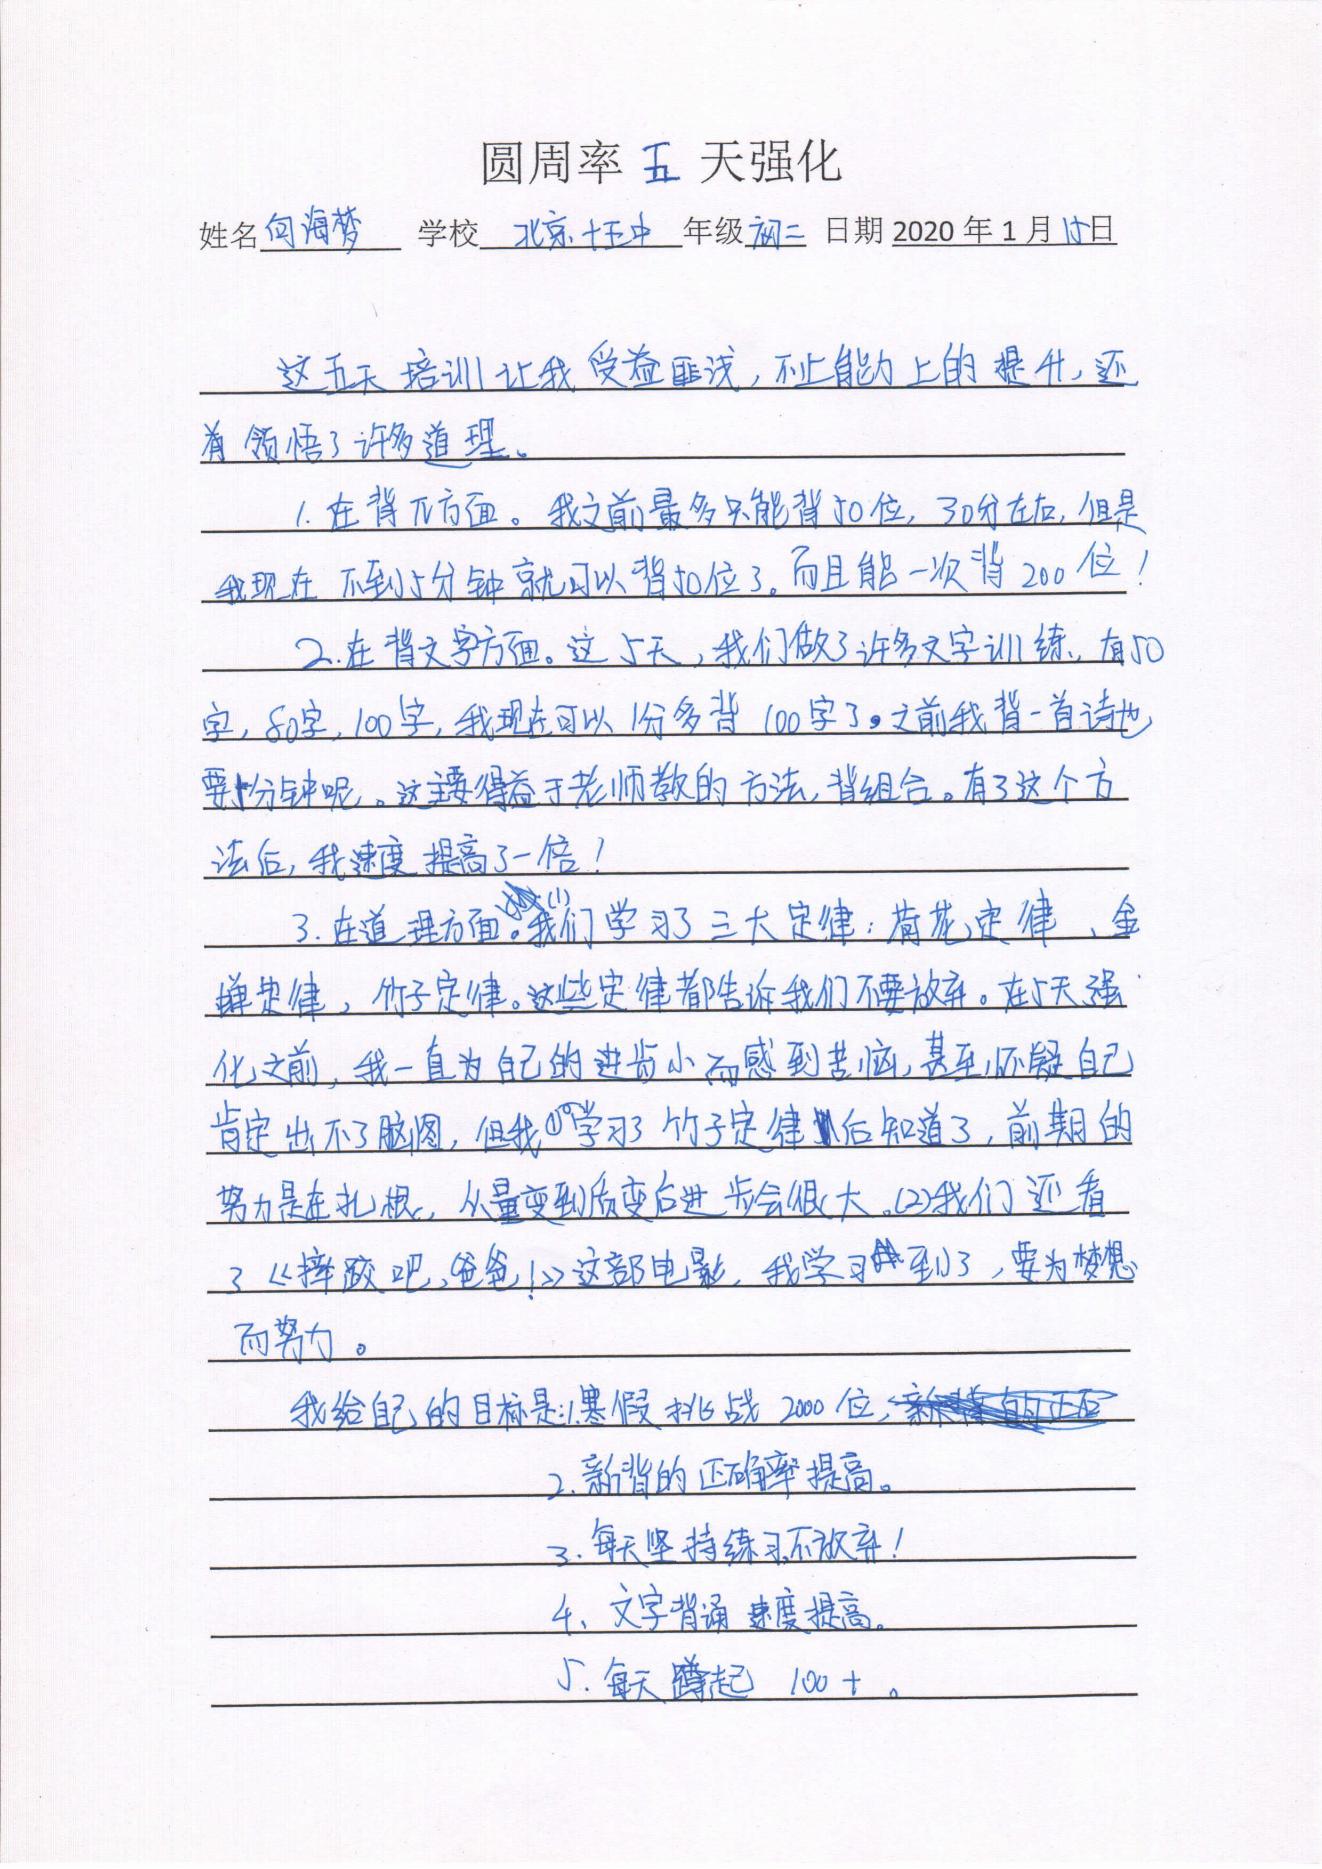 圆周率 五 天强化
姓名 向海梦 学校 北京十五中 年级 初二 日期 2020 年 1 月 15 日
这五天培训让我受益匪浅，不止能力上的提升，还
有领悟了许多道理。
1. 在背π方面。我之前最多只能背50位，30分左右，但是
我现在不到5分钟就可以背50位了。而且能一次背200位！
2. 在背文字方面。这5天，我们做了许多文字训练，有50
字，80字，100字，我现在可以1分多背100字了。之前我背一首诗也
要分钟呢。这主要得益于老师教的方法，背组合。有了这个方
法后，我速度提高了一倍！
3. 在道理方面。(1)我们学习了三大定律：荷花定律、金
蝉定律，竹子定律。这些定律都告诉我们不要放弃。在5天强
化之前，我一直为自己的进步小而感到苦恼，甚至怀疑自己
肯定出不了脑图，但我学习了竹子定律后知道了，前期的
努力是在扎根，从量变到质变后进步会很大。(2)我们还看
了《摔跤吧，爸爸！》这部电影，我学习到了，要为梦想
而努力。
我给自己的目标是：1.寒假挑战2000位，
2. 新背的正确率提高。
3. 每天坚持练习不放弃！
4、文字背诵速度提高。
5. 每天蹲起 100+。